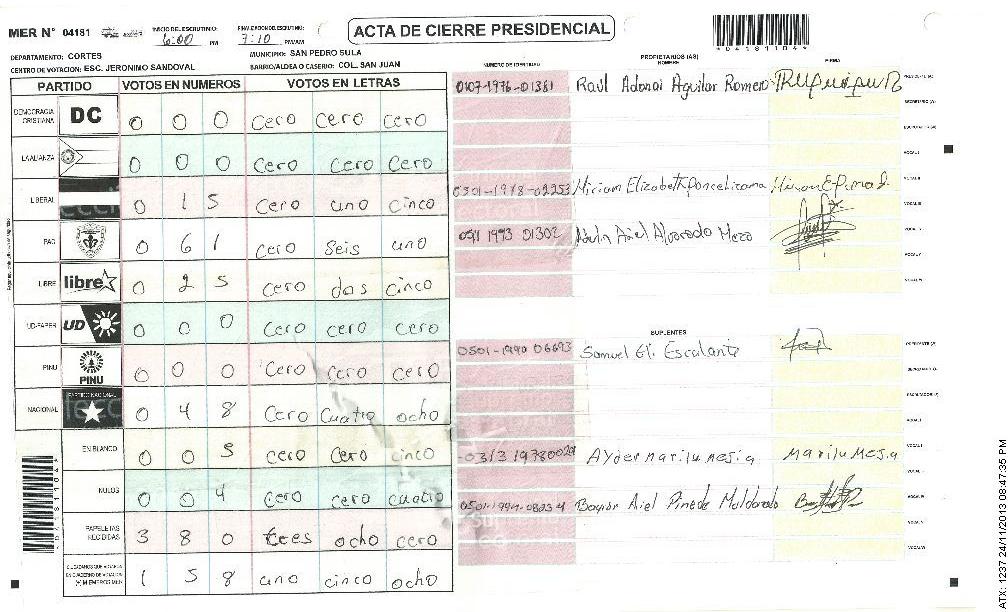 MER N° 04181
INICIO DEL ESCRUTINIO: 6:00 PM
FINALIZACION DEL ESCRUTINIO: 7:10 PM/AM
ACTA DE CIERRE PRESIDENCIAL
*04181104*
DEPARTAMENTO: CORTES
MUNICIPIO: SAN PEDRO SULA
CENTRO DE VOTACION: ESC. JERONIMO SANDOVAL
BARRIO/ALDEA O CASERIO: COL. SAN JUAN
PARTIDO VOTOS EN NUMEROS VOTOS EN LETRAS
DEMOCRACIA CRISTIANA DC 0 0 0 cero cero cero
LA ALIANZA 0 0 0 cero cero cero
LIBERAL 0 1 5 cero uno cinco
PAC 0 6 1 cero seis uno
LIBRE libre 0 2 5 cero dos cinco
UD-FAPER UD 0 0 0 cero cero cero
PINU PINU 0 0 0 cero cero cero
NACIONAL PARTIDO NACIONAL 0 4 8 cero cuatro ocho
EN BLANCO 0 0 5 cero cero cinco
NULOS 0 0 4 cero cero cuatro
PAPELETAS RECIBIDAS 3 8 0 tees ocho cero
CIUDADANOS QUE VOTARON EN CUADERNO DE VOTACION (+) MIEMBROS MER 1 5 8 uno cinco ocho
NUMERO DE IDENTIDAD
PROPIETARIOS (AS)
NOMBRE
FIRMA
0107-1976-01381 Raul Adonai Aguilar Romero
PRESIDENTE (A)
SECRETARIO (A)
ESCRUTADOR (A)
VOCAL I
0501-1978-02253 Miriam Elizabeth
VOCAL II
VOCAL III
1993 01302 Ariel Alvarado Meza
VOCAL V
SUPLENTES
0501-1990 06693 Samuel Eli Escalante
PRESIDENTE (A)
SECRETARIO (A)
ESCRUTADOR (A)
VOCAL I
Marilu Mesia Marilu Mesia
0501-1994-08234 Ariel Pineda Maldonado
ATX: 1237 24/11/2013 08:47:35 PM